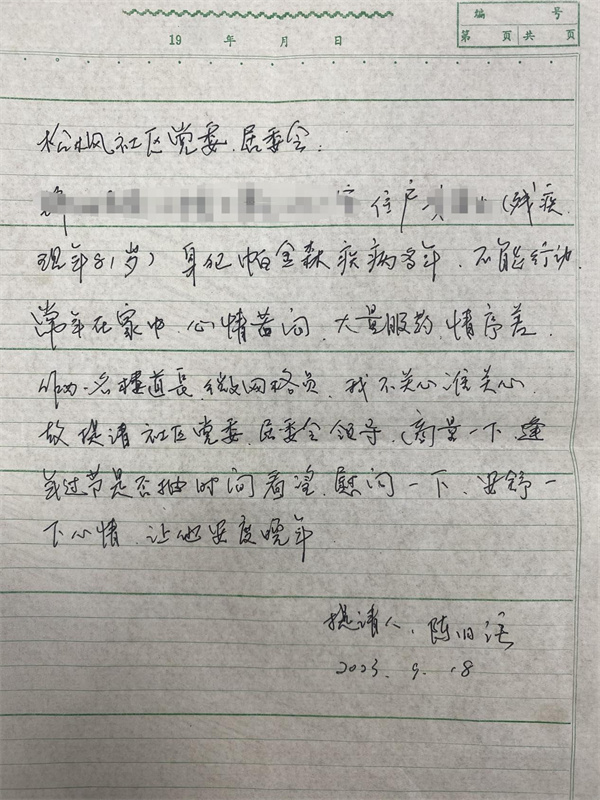 编 号
第 页 共 页
19 年 月 日
松枫社区党委.居委会.
住户 (残疾.
现年81岁) 身纪帕金森疾病多年.不能行动.
常年在家中.心情苦闷.大量服药.情序差.
作为一名楼道长.微网格员.我不关心谁关心
故提请社区党委.居委会领导.商量一下.逢
年过节是否抽时间看望.慰问一下.安舒一
下心情.让他安度晚年
提请人.陈旧
2023.9.18